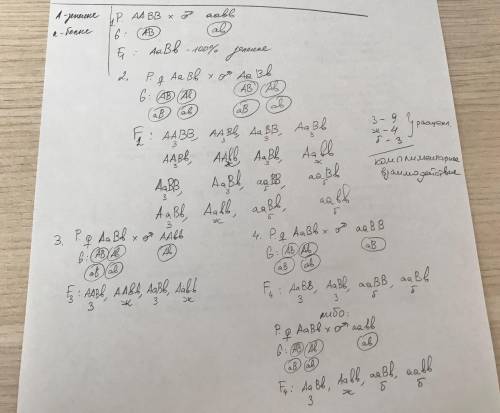 A - зеленые
а - белые
1. P. AABB × ♂ aabb
G: AB ab
F₁: AaBb - 100% зеленые
2. P. ♀ AaBb × ♂ AaBb
G: AB Ab AB Ab
aB ab aB ab
F₂: AABB, AABb, AaBB, AaBb
з з з з
AABb, AAbb, AaBb, Aabb
з ж з ж
AaBB, AaBb, aaBB, aaBb
з з б б
AaBb, Aabb, aaBb, aabb
з ж б б
з - 9
ж - 4
б - 3
комплиментарное
взаимодействие
3. P. ♀ AaBb × ♂ AAbb
G: AB Ab Ab
aB ab
F₃: AABb, AAbb, AaBb, Aabb
з ж з ж
4. P. ♀ AaBb × ♂ aaBB
G: AB Ab aB
aB ab
F₄: AaBB, AaBb, aaBB, aaBb
з з б б
либо:
P. ♀ AaBb × ♂ aabb
G: AB Ab ab
aB ab
F₄: AaBb, Aabb, aaBb, aabb
з ж б б